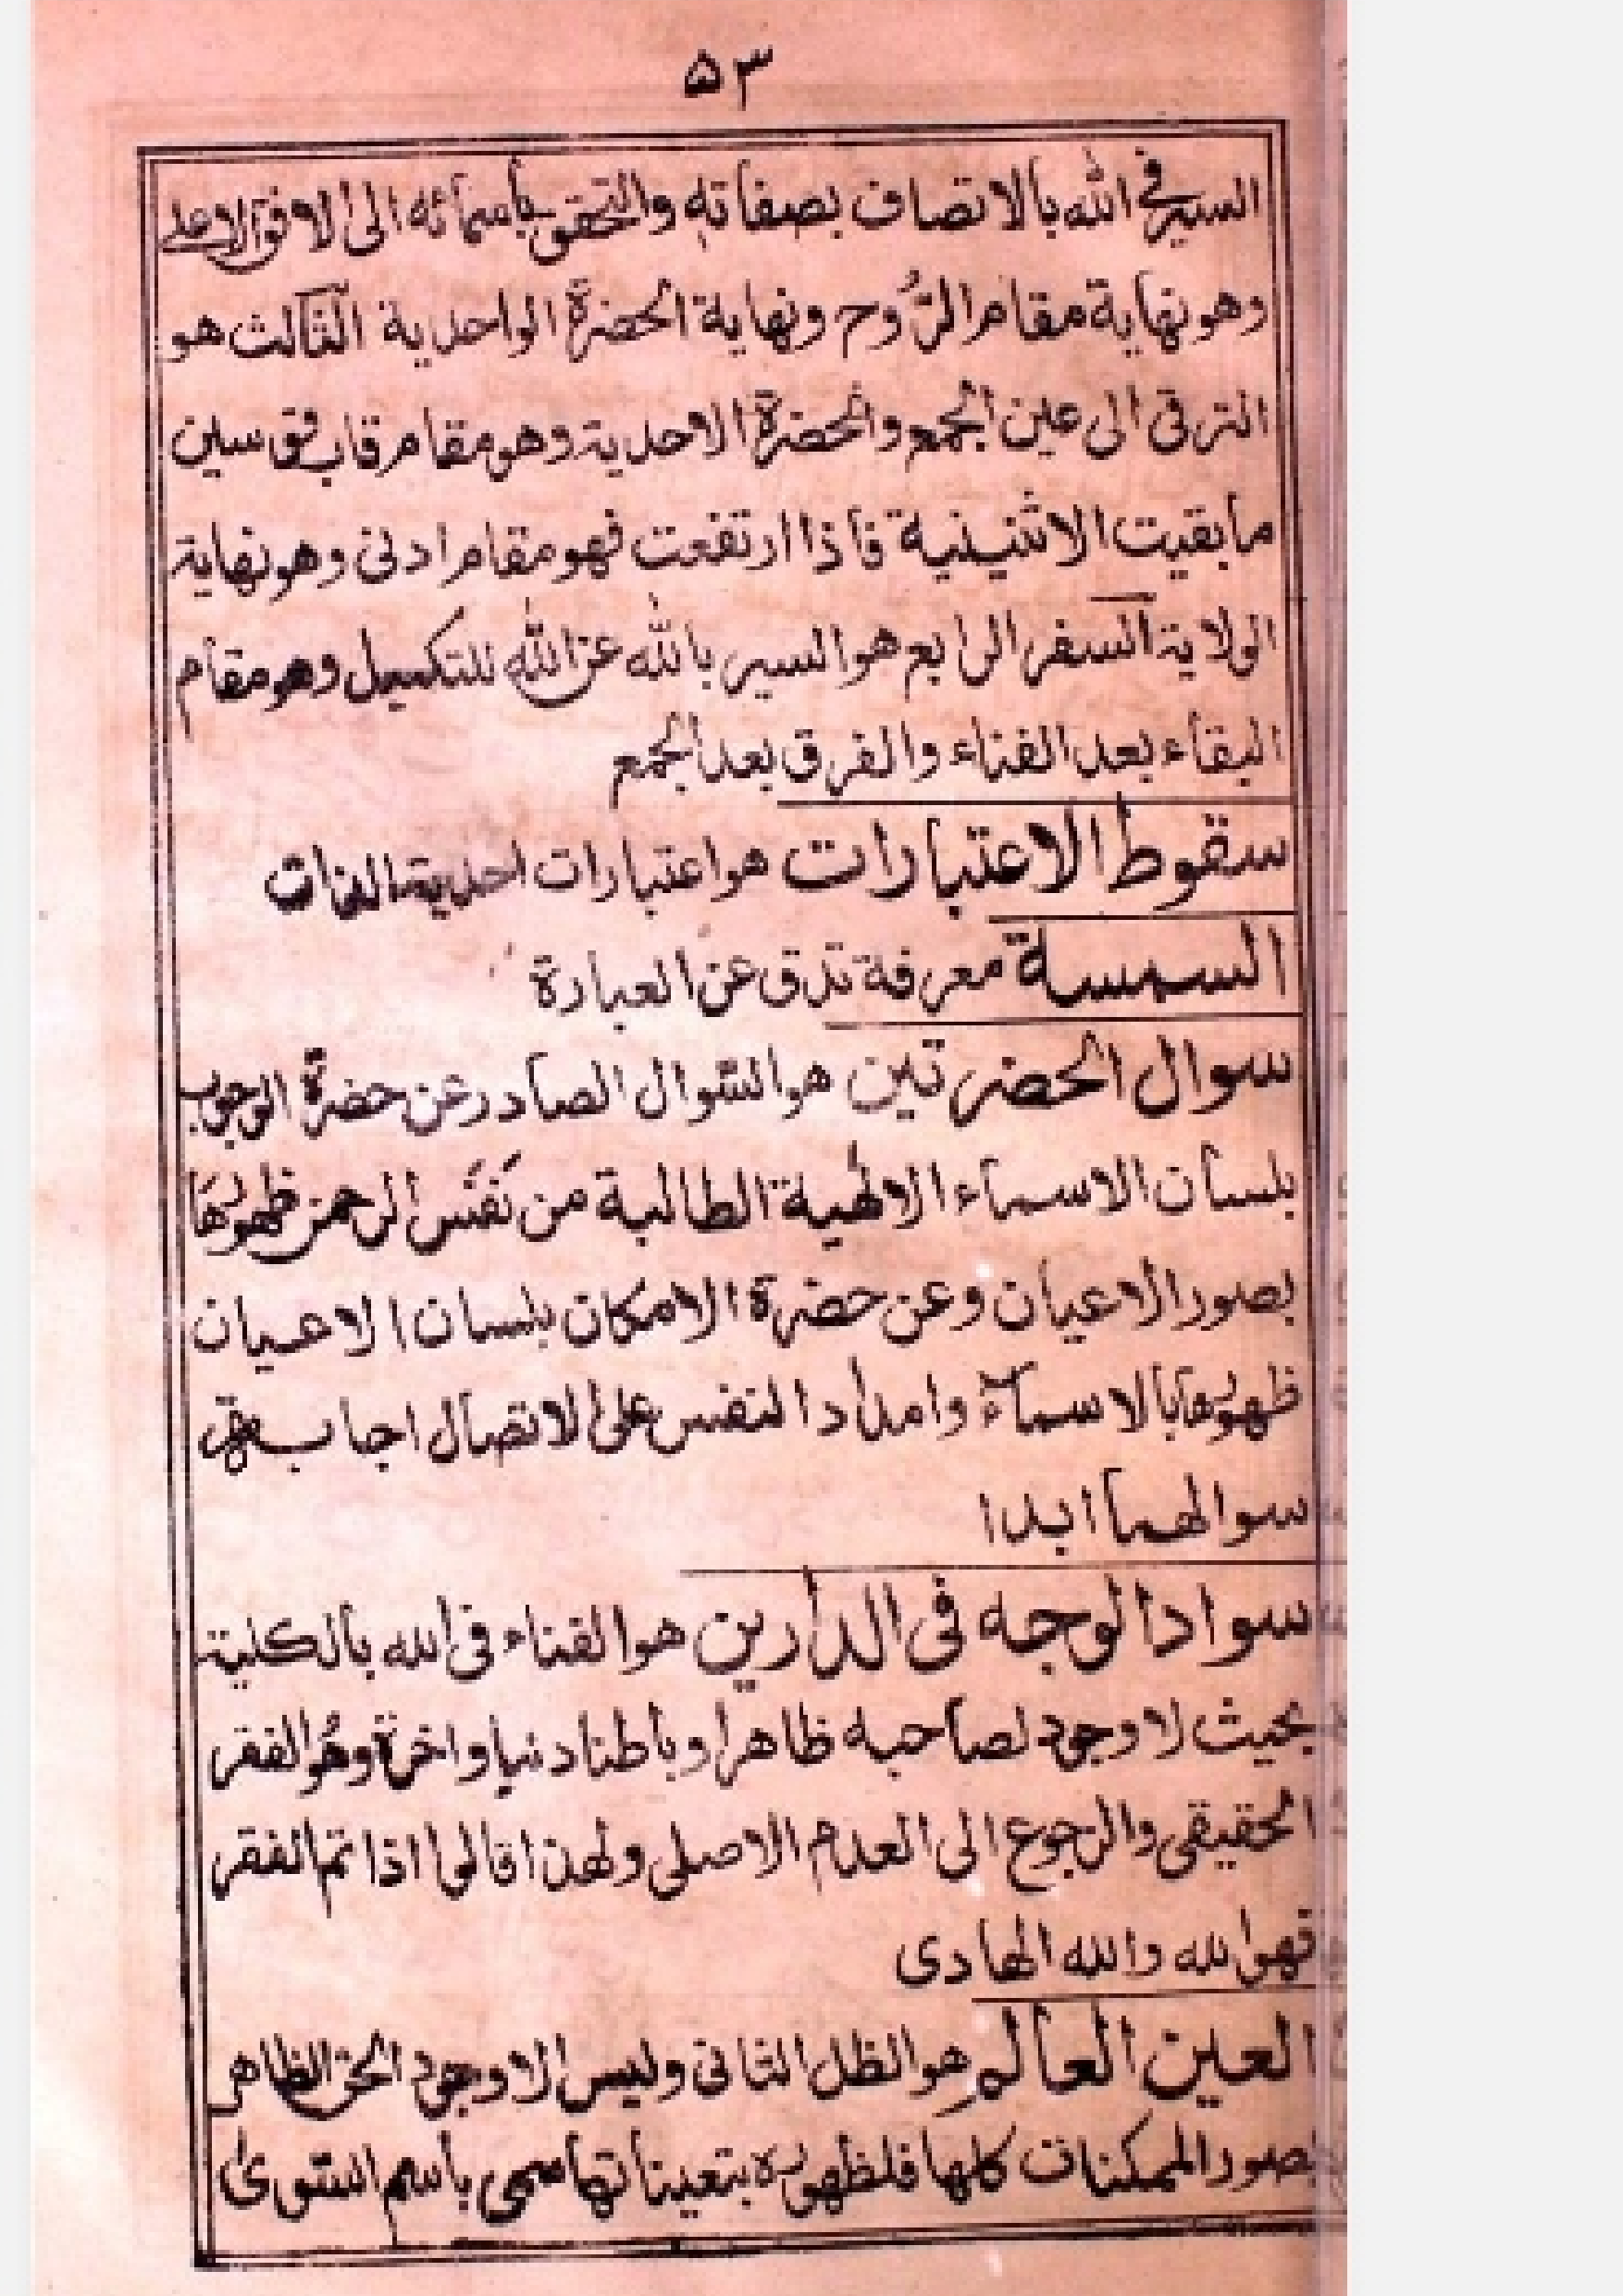 ۵۳
السير فى الله بالاتصاف بصفاته والتحقق باسمائه الى الافق الاعلى
وهو نهاية مقام الرُّوح ونهاية الحضرة الواحدية الثالث هو
الترقى الى عين الجمع والحضرة الاحدية وهو مقام قاب قوسين
مابقيت الاثنينية فاذا ارتفعت فهو مقام ادنى وهو نهاية
الولاية السفر الرابع هو السير بالله عن الله للتكميل وهو مقام
البقاء بعد الفناء والفرق بعد الجمع
سقوط الاعتبارات هو اعتبارات احدية الذات
السمسة معرفة تدق عن العبارة
سوال الحضرتين هو السوال الصادر عن حضرة الوجوب
بلسان الاسماء الالهية الطالبة من نَفَس الرحمن ظهورَها
بصور الاعيان وعن حضرة الامكان بلسان الاعيان
ظهورها بالاسماء وامداد النفس على الاتصال اجابة
سوالهما ابدا
سواد الوجه فى الدارين هو الفناء فى الله بالكلية
بحيث لا وجود لصاحبه ظاهرا وباطنا دنيا واخرة وهُو الفقر
الحقيقى والرجوع الى العدم الاصلى ولهذا قالوا اذا تم الفقر
فهو الله والله الهادى
العين العالم هو الظل الثانى وليس الا وجود الحق الظاهر
بصور الممكنات كلها فلظهوره بتعيناتها سمى باسم السوى